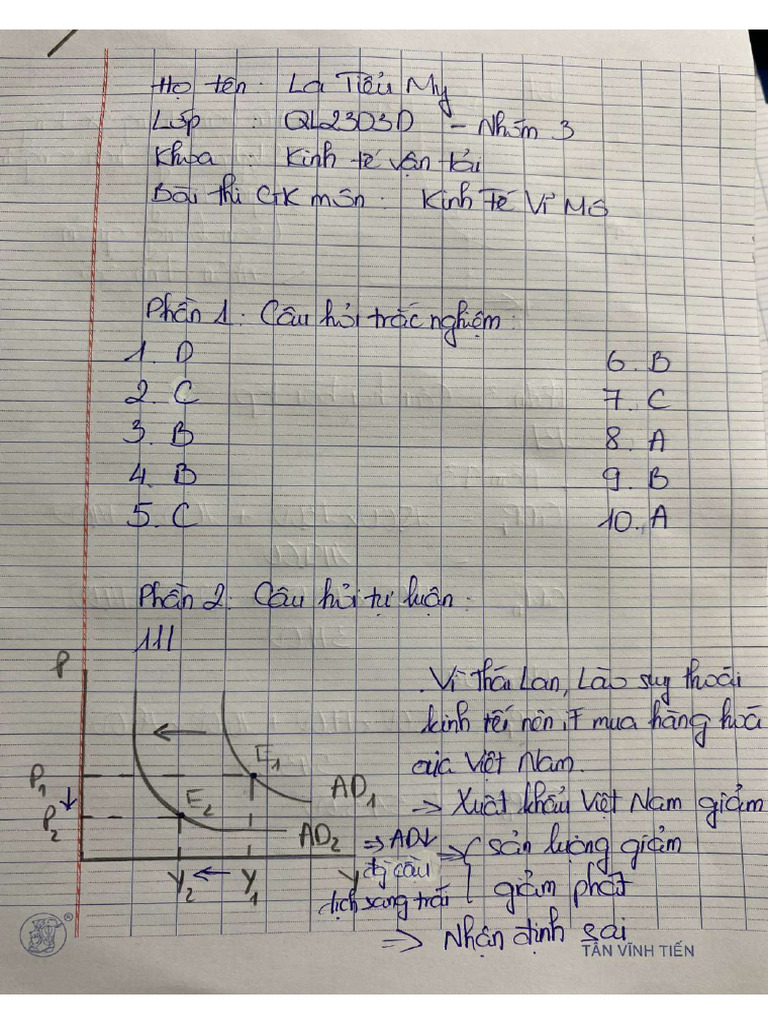 Họ tên : La Tiểu My
Lớp : QL2303D - Nhóm 3
Khoa : Kinh tế vận tải
Bài thi GK môn : Kinh Tế Vĩ Mô
Phần 1 : Câu hỏi trắc nghiệm :
1. D
2. C
3. B
4. B
5. C
6. B
7. C
8. A
9. B
10. A
Phần 2 : Câu hỏi tự luận :
111
P
P1
P2
E1
E2
AD1
AD2
Y2 ← Y1
Y
. Vì Thái Lan, Lào suy thoái
kinh tế nên ít mua hàng hoá
của Việt Nam.
→ Xuất khẩu Việt Nam giảm
⇒ AD↓ ⇒ { sản lượng giảm
giảm phát
đg cầu
dịch sang trái
⇒ Nhận định sai
TÂN VĨNH TIẾN
®